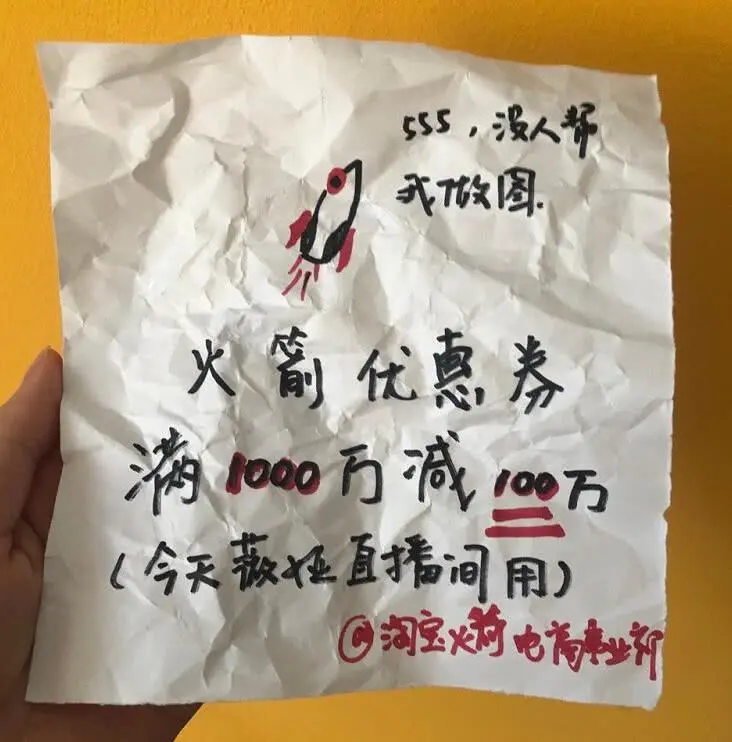 555，没人帮
我做图.
火箭优惠券
满1000万减100万
(今天薇娅直播间用)
@淘宝火箭电商事业部